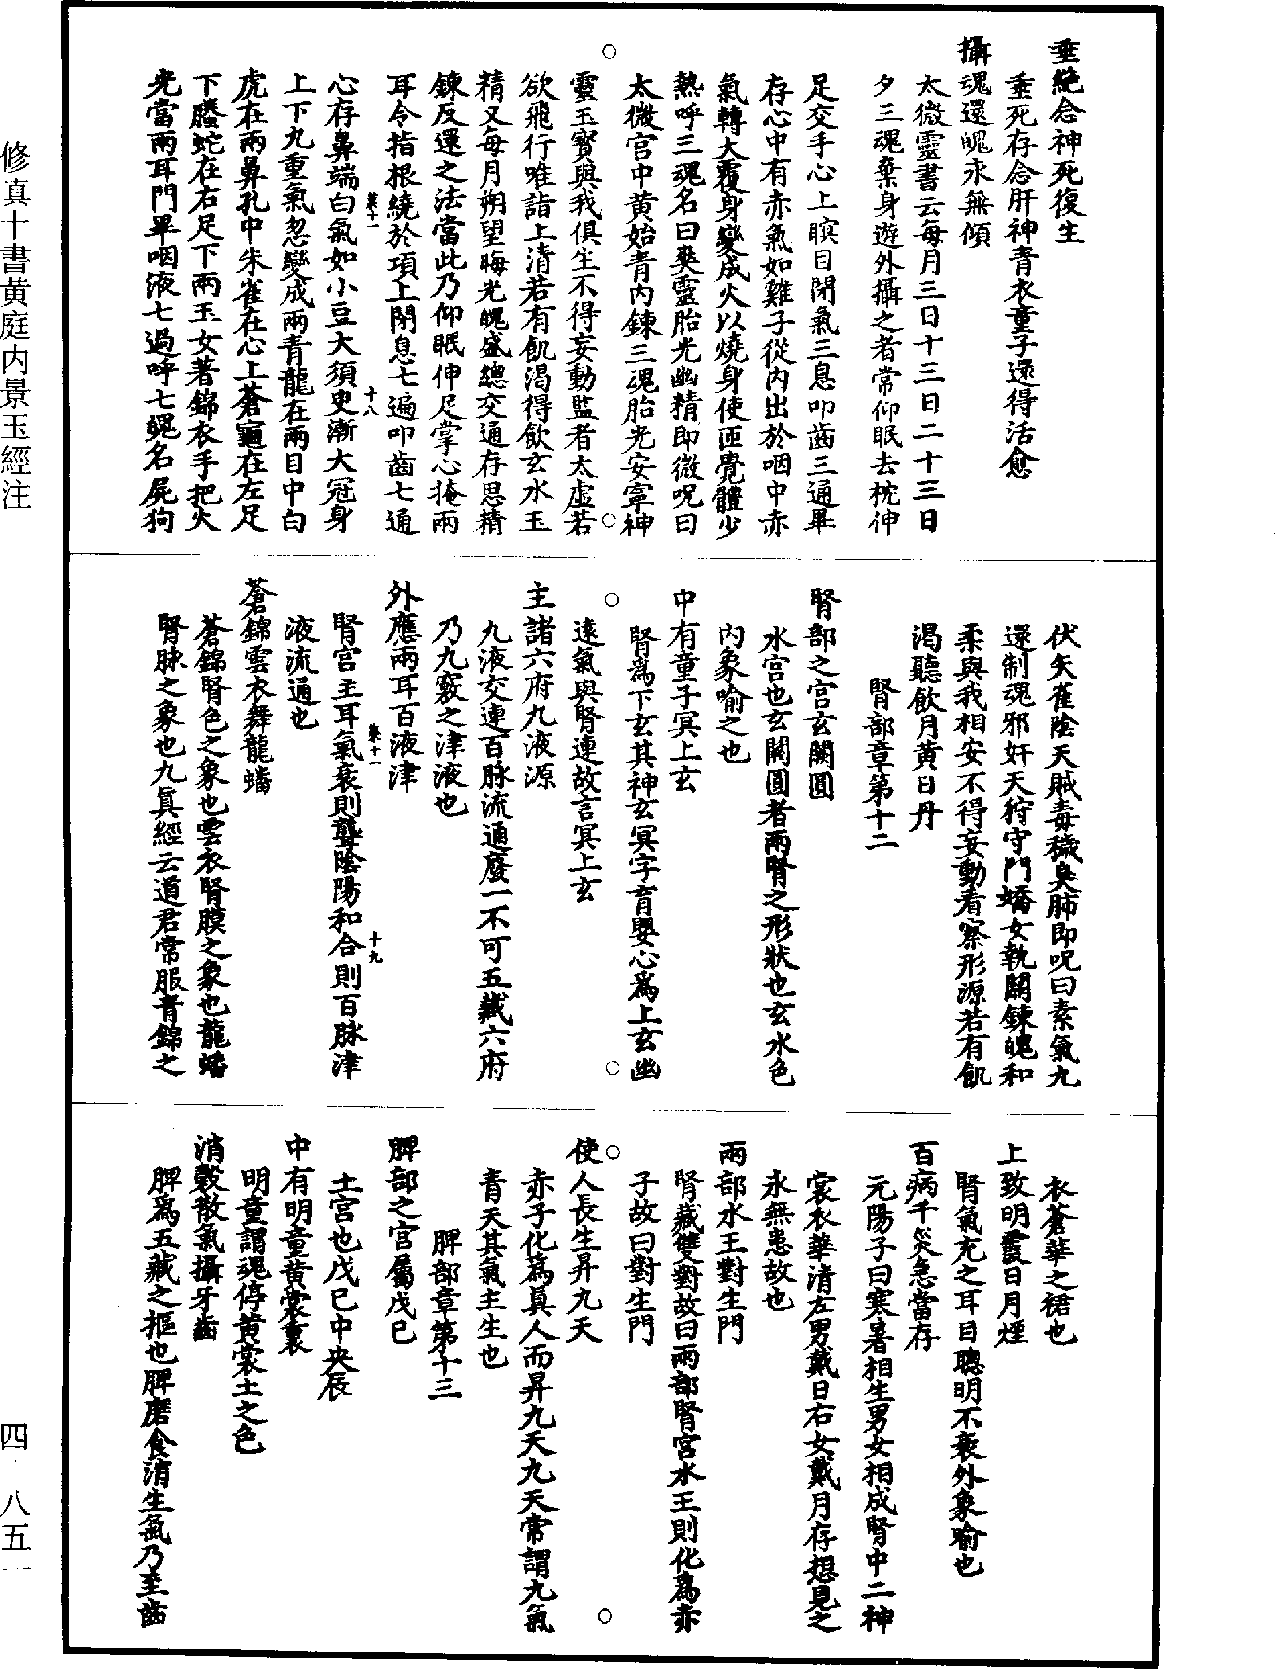 垂絶念神死復生
垂死存念肝神青衣童子還得活愈
攝魂還魄永無傾
太微靈書云每月三日十三日二十三日
夕三魂棄身遊外攝之者常仰眠去枕伸
足交手心上瞑目閉氣三息叩齒三通畢
存心中有赤氣如雞子從內出於咽中赤
氣轉大覆身變成火以燒身使匝覺體少
熱呼三魂名曰爽靈胎光幽精即微呪曰
太微宮中黃始青內鍊三魂胎光安寧神
靈玉寳與我俱生不得妄動監者太虛若
欲飛行唯詣上清若有飢渴得飲玄水玉
精又每月朔望晦光魄盛總交通存思精
鍊反還之法當此乃仰眠伸足掌心掩兩
耳令指根繞於項上閉息七遍叩齒七通
菜十一
十八
心存鼻端白氣如小豆大須史漸大冠身
上下九重氣忽變成兩青龍在兩目中白
虎在兩鼻孔中朱雀在心上蒼龜在左足
下螣蛇在右足下兩玉女著錦衣手把火
光當兩耳門畢咽液七過呼七魄名屍狗
伏矢雀陰天賊毒穢臭肺即呪曰素氣九
還制魂邪奸天狩守門嬌女執關鍊魄和
柔與我相安不得妄動看察形源若有飢
渴聽飲月黃日丹
腎部章第十二
腎部之宮玄闕圓
水宮也玄闕圓者兩腎之形狀也玄水色
內象喻之也
中有童子冥上玄
腎爲下玄其神玄冥字育嬰心爲上玄幽
遠氣與腎連故言冥上玄
主諸六府九液源
九液交連百脉流通廢一不可五藏六府
乃九竅之津液也
外應兩耳百液津
菜十一
十九
腎宮主耳氣衰則聾陰陽和合則百脉津
液流通也
蒼錦雲衣舞龍蟠
蒼錦腎色之象也雲衣腎膜之象也龍蟠
腎脉之象也九真經云道君常服青錦之
衣蒼華之裙也
上致明霞日月煙
腎氣充之耳目聰明不衰外象喻也
百病千災急當存
元陽子曰寒暑相生男女相成腎中二神
裳衣華清左男戴日右女戴月存想見之
永無患故也
兩部水王對生門
腎藏雙對故曰兩部腎宮水王則化爲赤
子故曰對生門
使人長生昇九天
赤子化爲真人而昇九天九天常謂九氣
青天其氣主生也
脾部章第十三
脾部之宮屬戊已
土宮也戊已中央辰
中有明童黃裳裏
明童謂魂停黃裳土之色
消穀散氣攝牙齒
脾爲五藏之摳也脾磨食消生氣乃至齒
修真十書黃庭內景玉經注
四·八五一